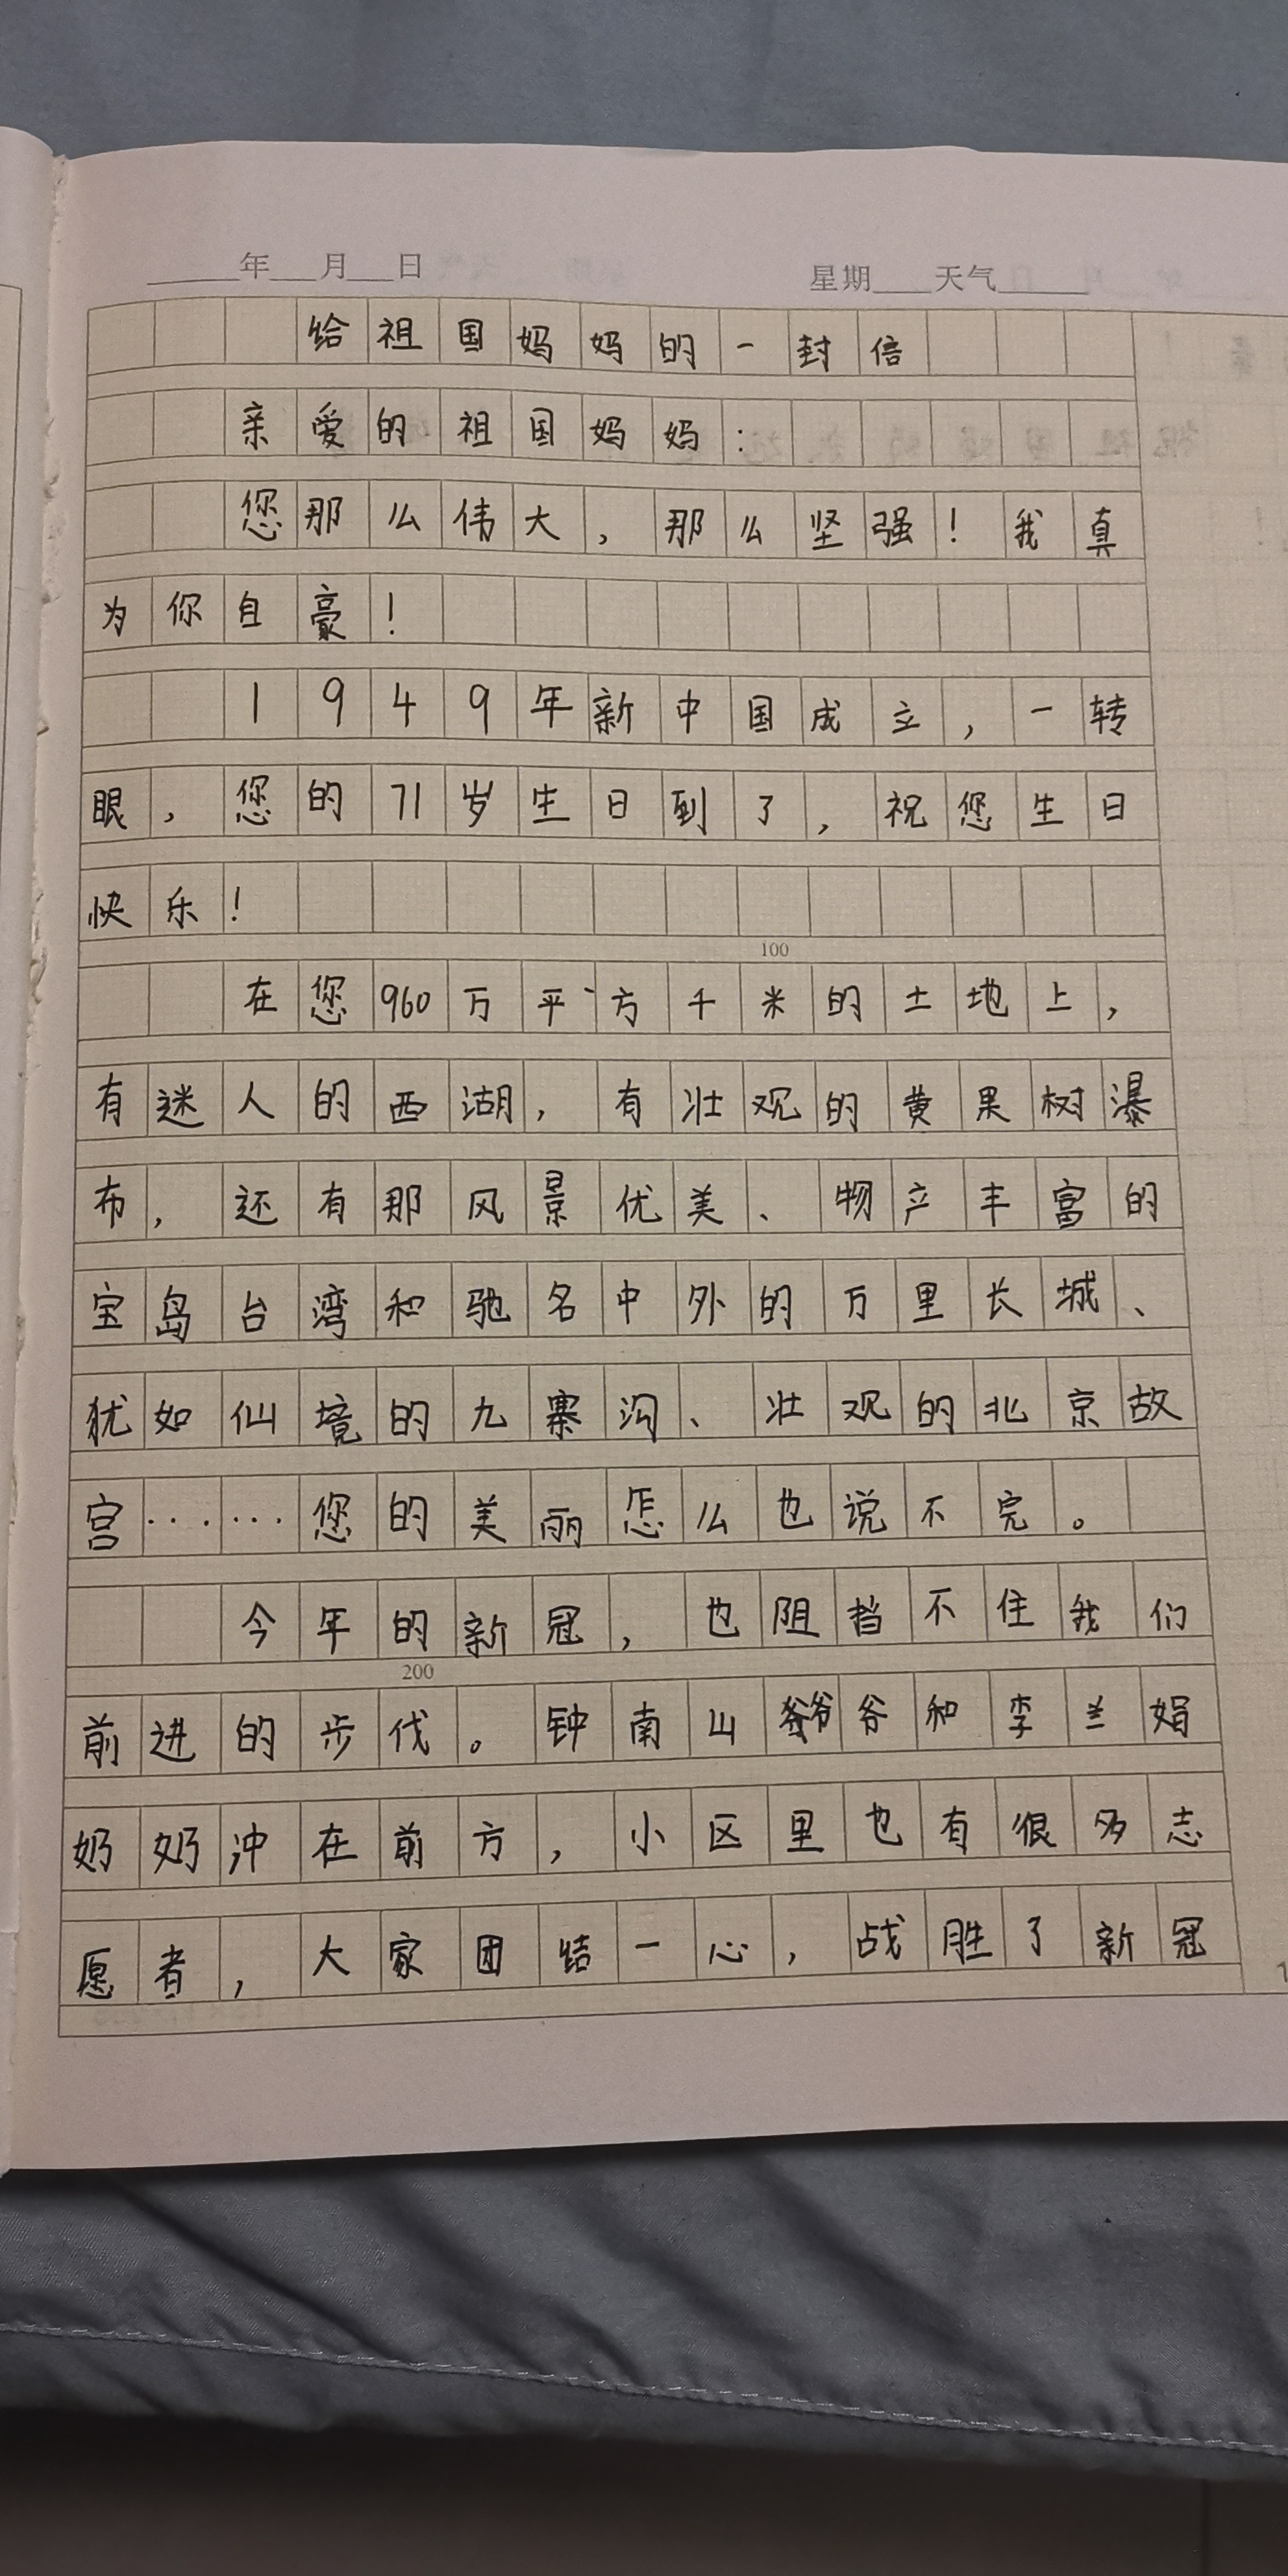 ____年__月__日 星期__天气____
给祖国妈妈的一封信
亲爱的祖国妈妈：
您那么伟大，那么坚强！我真
为你自豪！
1949年新中国成立，一转
眼，您的71岁生日到了，祝您生日
快乐！
100
在您960万平方千米的土地上，
有迷人的西湖，有壮观的黄果树瀑
布，还有那风景优美、物产丰富的
宝岛台湾和驰名中外的万里长城、
犹如仙境的九寨沟、壮观的北京故
宫……您的美丽怎么也说不完。
今年的新冠，也阻挡不住我们
200
前进的步伐。钟南山爷爷和李兰娟
奶奶冲在前方，小区里也有很多志
愿者，大家团结一心，战胜了新冠